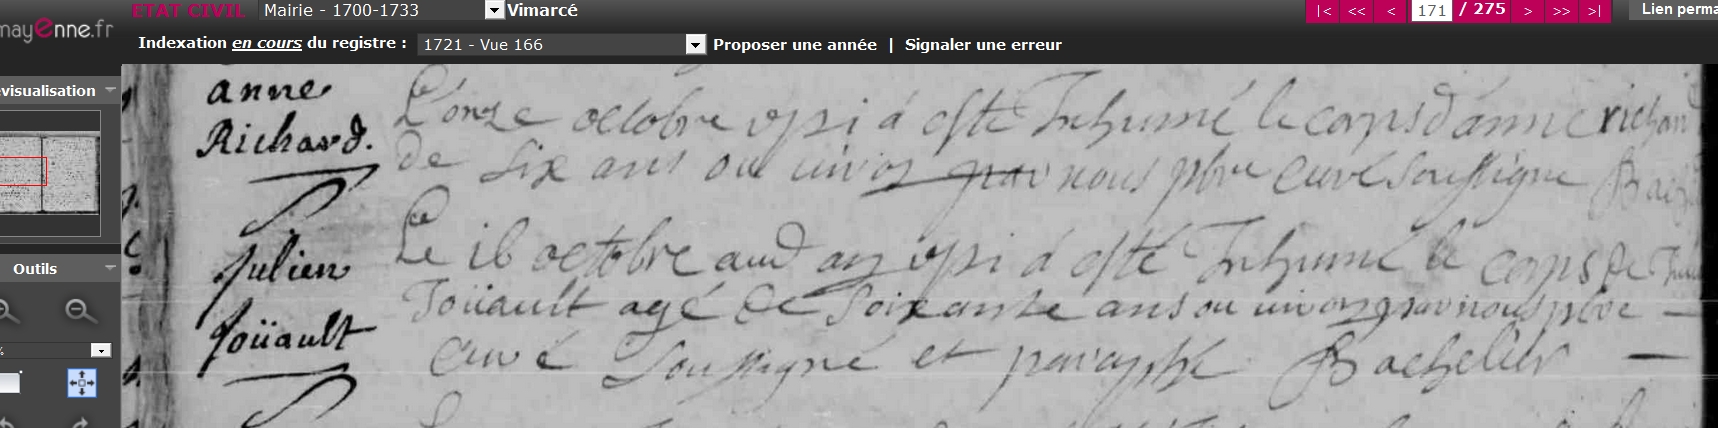 ETAT CIVIL Mairie - 1700-1733 Vimarcé |< << < 171 / 275 > >> >| Lien perma
mayenne.fr
Indexation en cours du registre : 1721 - Vue 166 Proposer une année | Signaler une erreur
évisualisation
Outils
%
anne
Richard.
L'onze octobre a esté Inhumé le corps d'anne richard
de six ans ou environ par nous pbre curé soussigné
Julien
Joüault
Le 16 octobre aud an a esté Inhumé le corps de
Joüault agé de soixante ans ou environ par nous pbre
curé soussigné et paraphé Bachelier